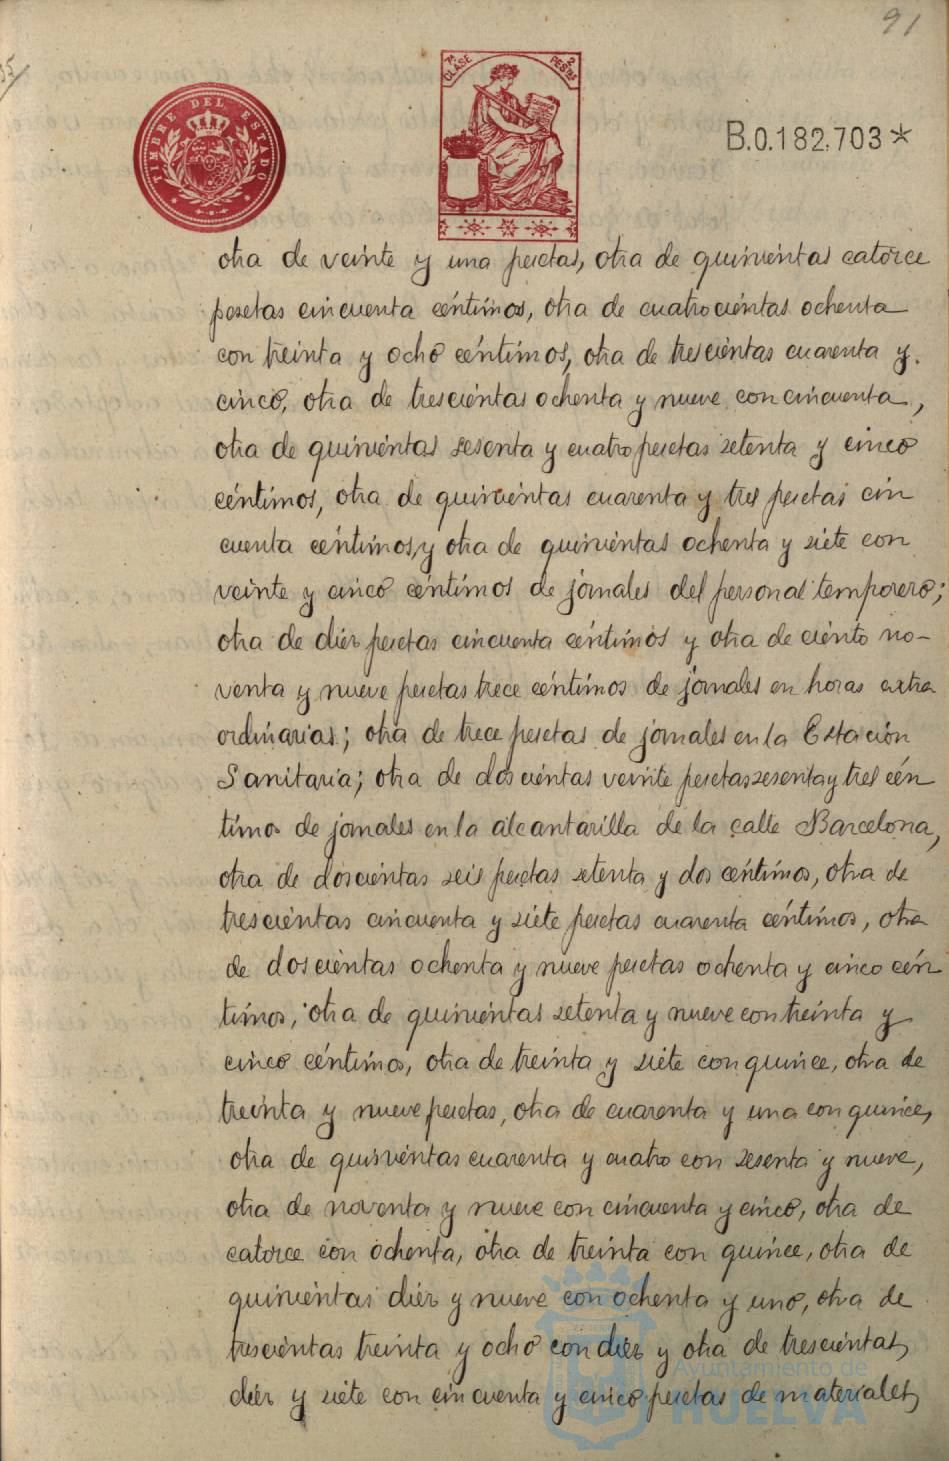 91
TIMBRE DEL ESTADO
7ª CLASE 2 PESETAS
B.0.182.703*
otra de veinte y una pesetas, otra de quinientas catorce
pesetas cincuenta céntimos, otra de cuatrocientas ochenta
con treinta y ocho céntimos, otra de trescientas cuarenta y
cinco, otra de trescientas ochenta y nueve con cincuenta,
otra de quinientas sesenta y cuatro pesetas setenta y cinco
céntimos, otra de quinientas cuarenta y tres pesetas cin
cuenta céntimos, y otra de quinientas ochenta y siete con
veinte y cinco céntimos de jornales del personal temporero;
otra de diez pesetas cincuenta céntimos y otra de ciento no-
venta y nueve pesetas trece céntimos de jornales en horas extra
ordinarias; otra de trece pesetas de jornales en la Estación
Sanitaria; otra de doscientas veinte pesetas sesenta y tres cén
timos de jornales en la alcantarilla de la calle Barcelona,
otra de doscientas seis pesetas setenta y dos céntimos, otra de
trescientas cincuenta y siete pesetas cuarenta céntimos, otra
de doscientas ochenta y nueve pesetas ochenta y cinco cén
timos, otra de quinientas setenta y nueve con treinta y
cinco céntimos, otra de treinta y siete con quince, otra de
treinta y nueve pesetas, otra de cuarenta y una con quince,
otra de quinientas cuarenta y cuatro con sesenta y nueve,
otra de noventa y nueve con cincuenta y cinco, otra de
catorce con ochenta, otra de treinta con quince, otra de
quinientas diez y nueve con ochenta y uno, otra de
trescientas treinta y ocho con diez y otra de trescientas
diez y siete con cincuenta y cinco pesetas de materiales,
Ayuntamiento de
HUELVA